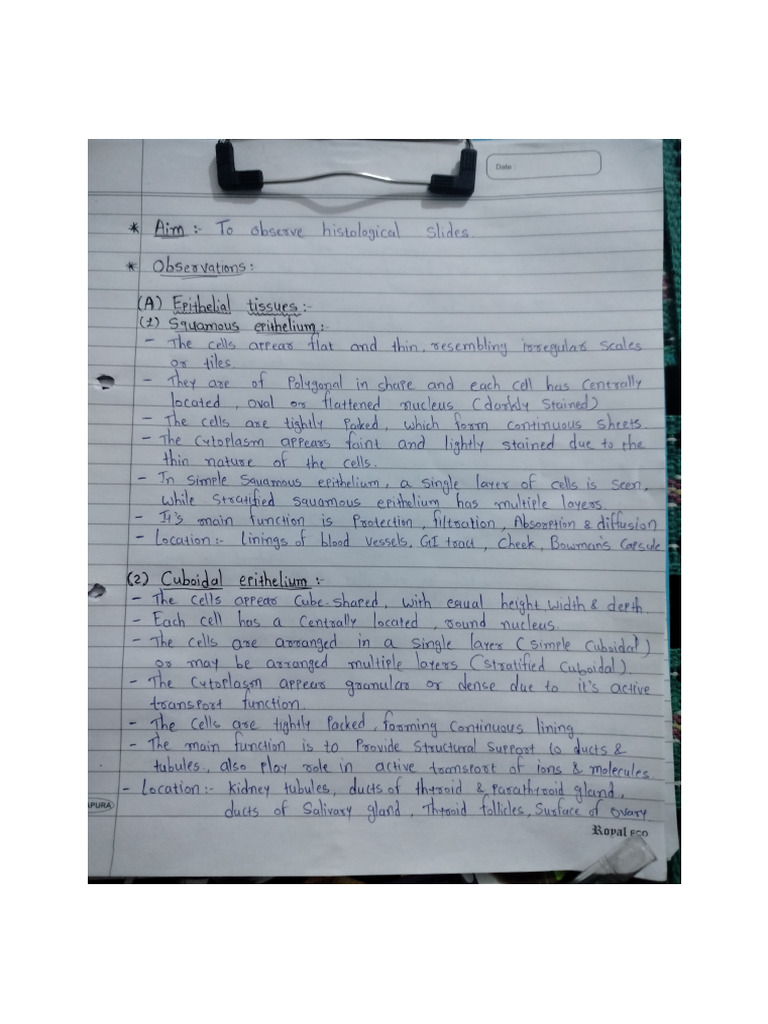 Date :
* Aim :- To observe histological slides.
* Observations :
(A) Epithelial tissues :-
(1) Squamous epithelium :-
- The cells appear flat and thin, resembling irregular scales
or tiles.
- They are of Polygonal in shape and each cell has centrally
located, oval or flattened nucleus (darkly stained)
- The cells are tightly Paked, which form continuous sheets.
- The cytoplasm appears faint and lightly stained due to the
thin nature of the cells.
- In simple squamous epithelium, a single layer of cells is seen,
while stratified squamous epithelium has multiple layers.
- It's main function is Protection, filtration, Absorption & diffusion
- Location :- linings of blood vessels, GI tract, Cheek, Bowman's Capsule
(2) Cuboidal epithelium :-
- The cells appear Cube-shaped, with equal height, width & depth.
- Each cell has a centrally located, round nucleus.
- The cells are arranged in a single layer (simple cuboidal)
or may be arranged multiple layers (stratified cuboidal).
- The cytoplasm appears granular or dense due to it's active
transport function.
- The cells are tightly Packed, forming continuous lining
- The main function is to Provide Structural Support to ducts &
tubules, also play role in active transport of ions & molecules
- Location :- kidney tubules, ducts of thyroid & parathyroid gland,
ducts of Salivary gland, Thyroid follicles, Surface of ovary
APURA
Royal ECO